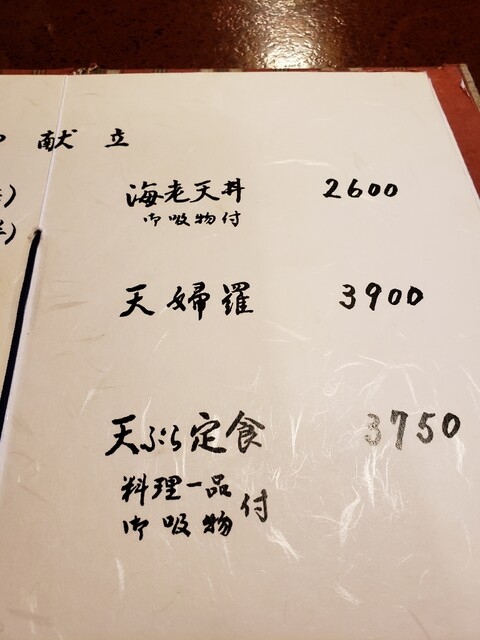 献立
海老天丼 2600
御吸物付
天婦羅 3900
天ぷら定食 3750
料理一品
御吸物付